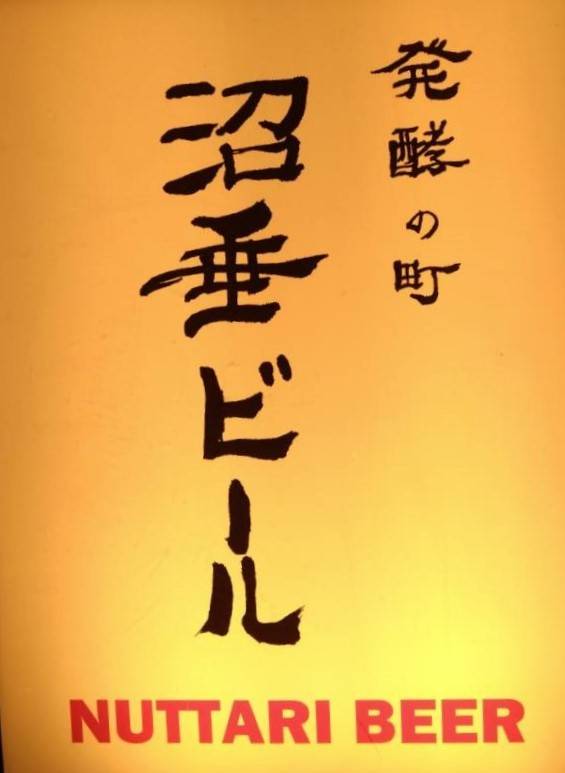 発酵の町
沼垂ビール
NUTTARI BEER